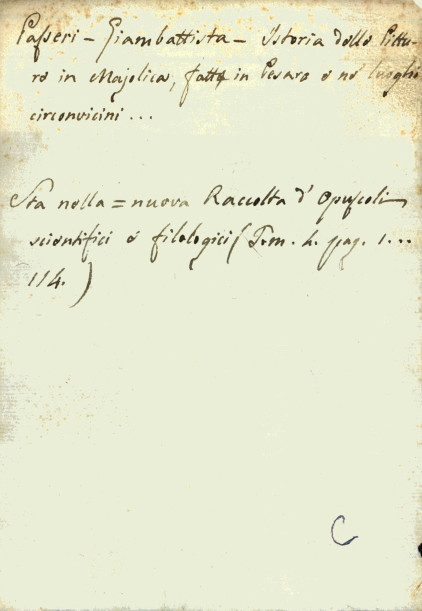 Paſseri - Giambattista - Istoria delle Pittu-
re in Majolica, fatte in Pesaro e ne' luoghi
circonvicini ...
Sta nella = nuova Raccolta d' opuſcoli
scientifici e filologici (Tom. 4. pag. 1...
114.)
C